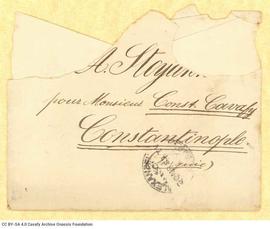 A. Stoyan
pour Monsieur Const. Cavafy
Constantinople
CC BY-SA 4.0 Cavafy Archive Onassis Foundation